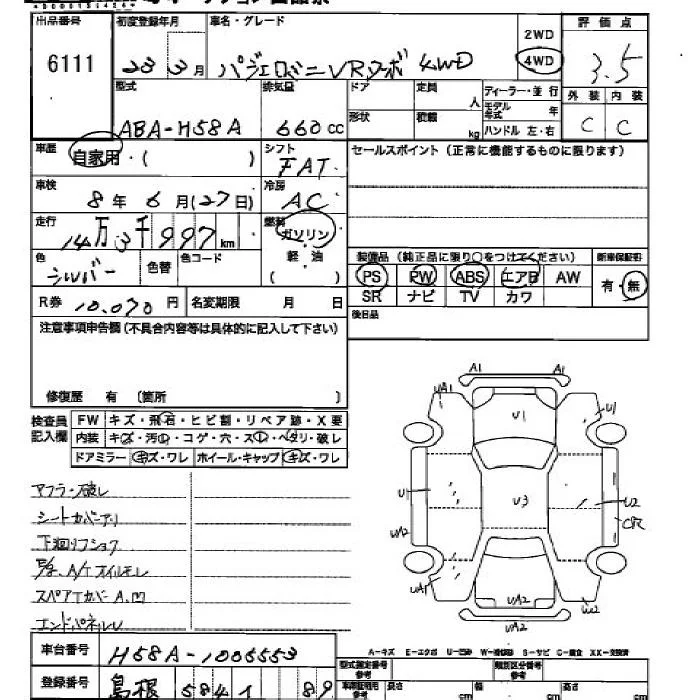 出品番号 初度登録年月 車名・グレード 2WD 評価点
6111 23 3月 パジェロミニVRターボ 4WD 4WD 3.5
型式 排気量 ドア 定員 人 ディーラー・並行 外装 内装
ABA-H58A 660cc 形状 積載 kg モデル年式 年 C C
ハンドル 左・右
車歴 自家用・( ) シフト FAT セールスポイント(正常に機能するものに限ります)
車検 8年6月(27日) 冷房 AC
走行 14万3千997km 燃料 ガソリン
色 シルバー 色替 色コード 軽油 ( )
装備品(純正品に限り○をつけてください) 新車保証書
PS PW ABS エアB AW 有・無
SR ナビ TV カワ
R券 10,070円 名変期限 月 日 後日品
注意事項申告欄(不具合内容等は具体的に記入して下さい)
修復歴 有 〔箇所 〕
検査員記入欄 FW キズ・飛石・ヒビ割・リペア跡・X要
内装 キズ・汚れ・コゲ・穴・スレ・ヘタリ・破レ
ドアミラー キズ・ワレ ホイール・キャップ キズ・ワレ
A1 A1
UA1 U1 U1
U1 U3 U2
UA2 CR
UA1 UA2 UA2
マフラー破レ
シートカバーアリ
下廻リフショク
A/Tオイルモレ
スペアTカバーA、凹
エンドパネルU
車台番号 H58A-1005553
A-キズ E-エクボ U-凹み W-補修跡 S-サビ C-腐食 XX-交換済
登録番号 島根 584 1 89
型式指定番号 参考 類別区分番号 参考
長さ cm 幅 cm 高さ cm